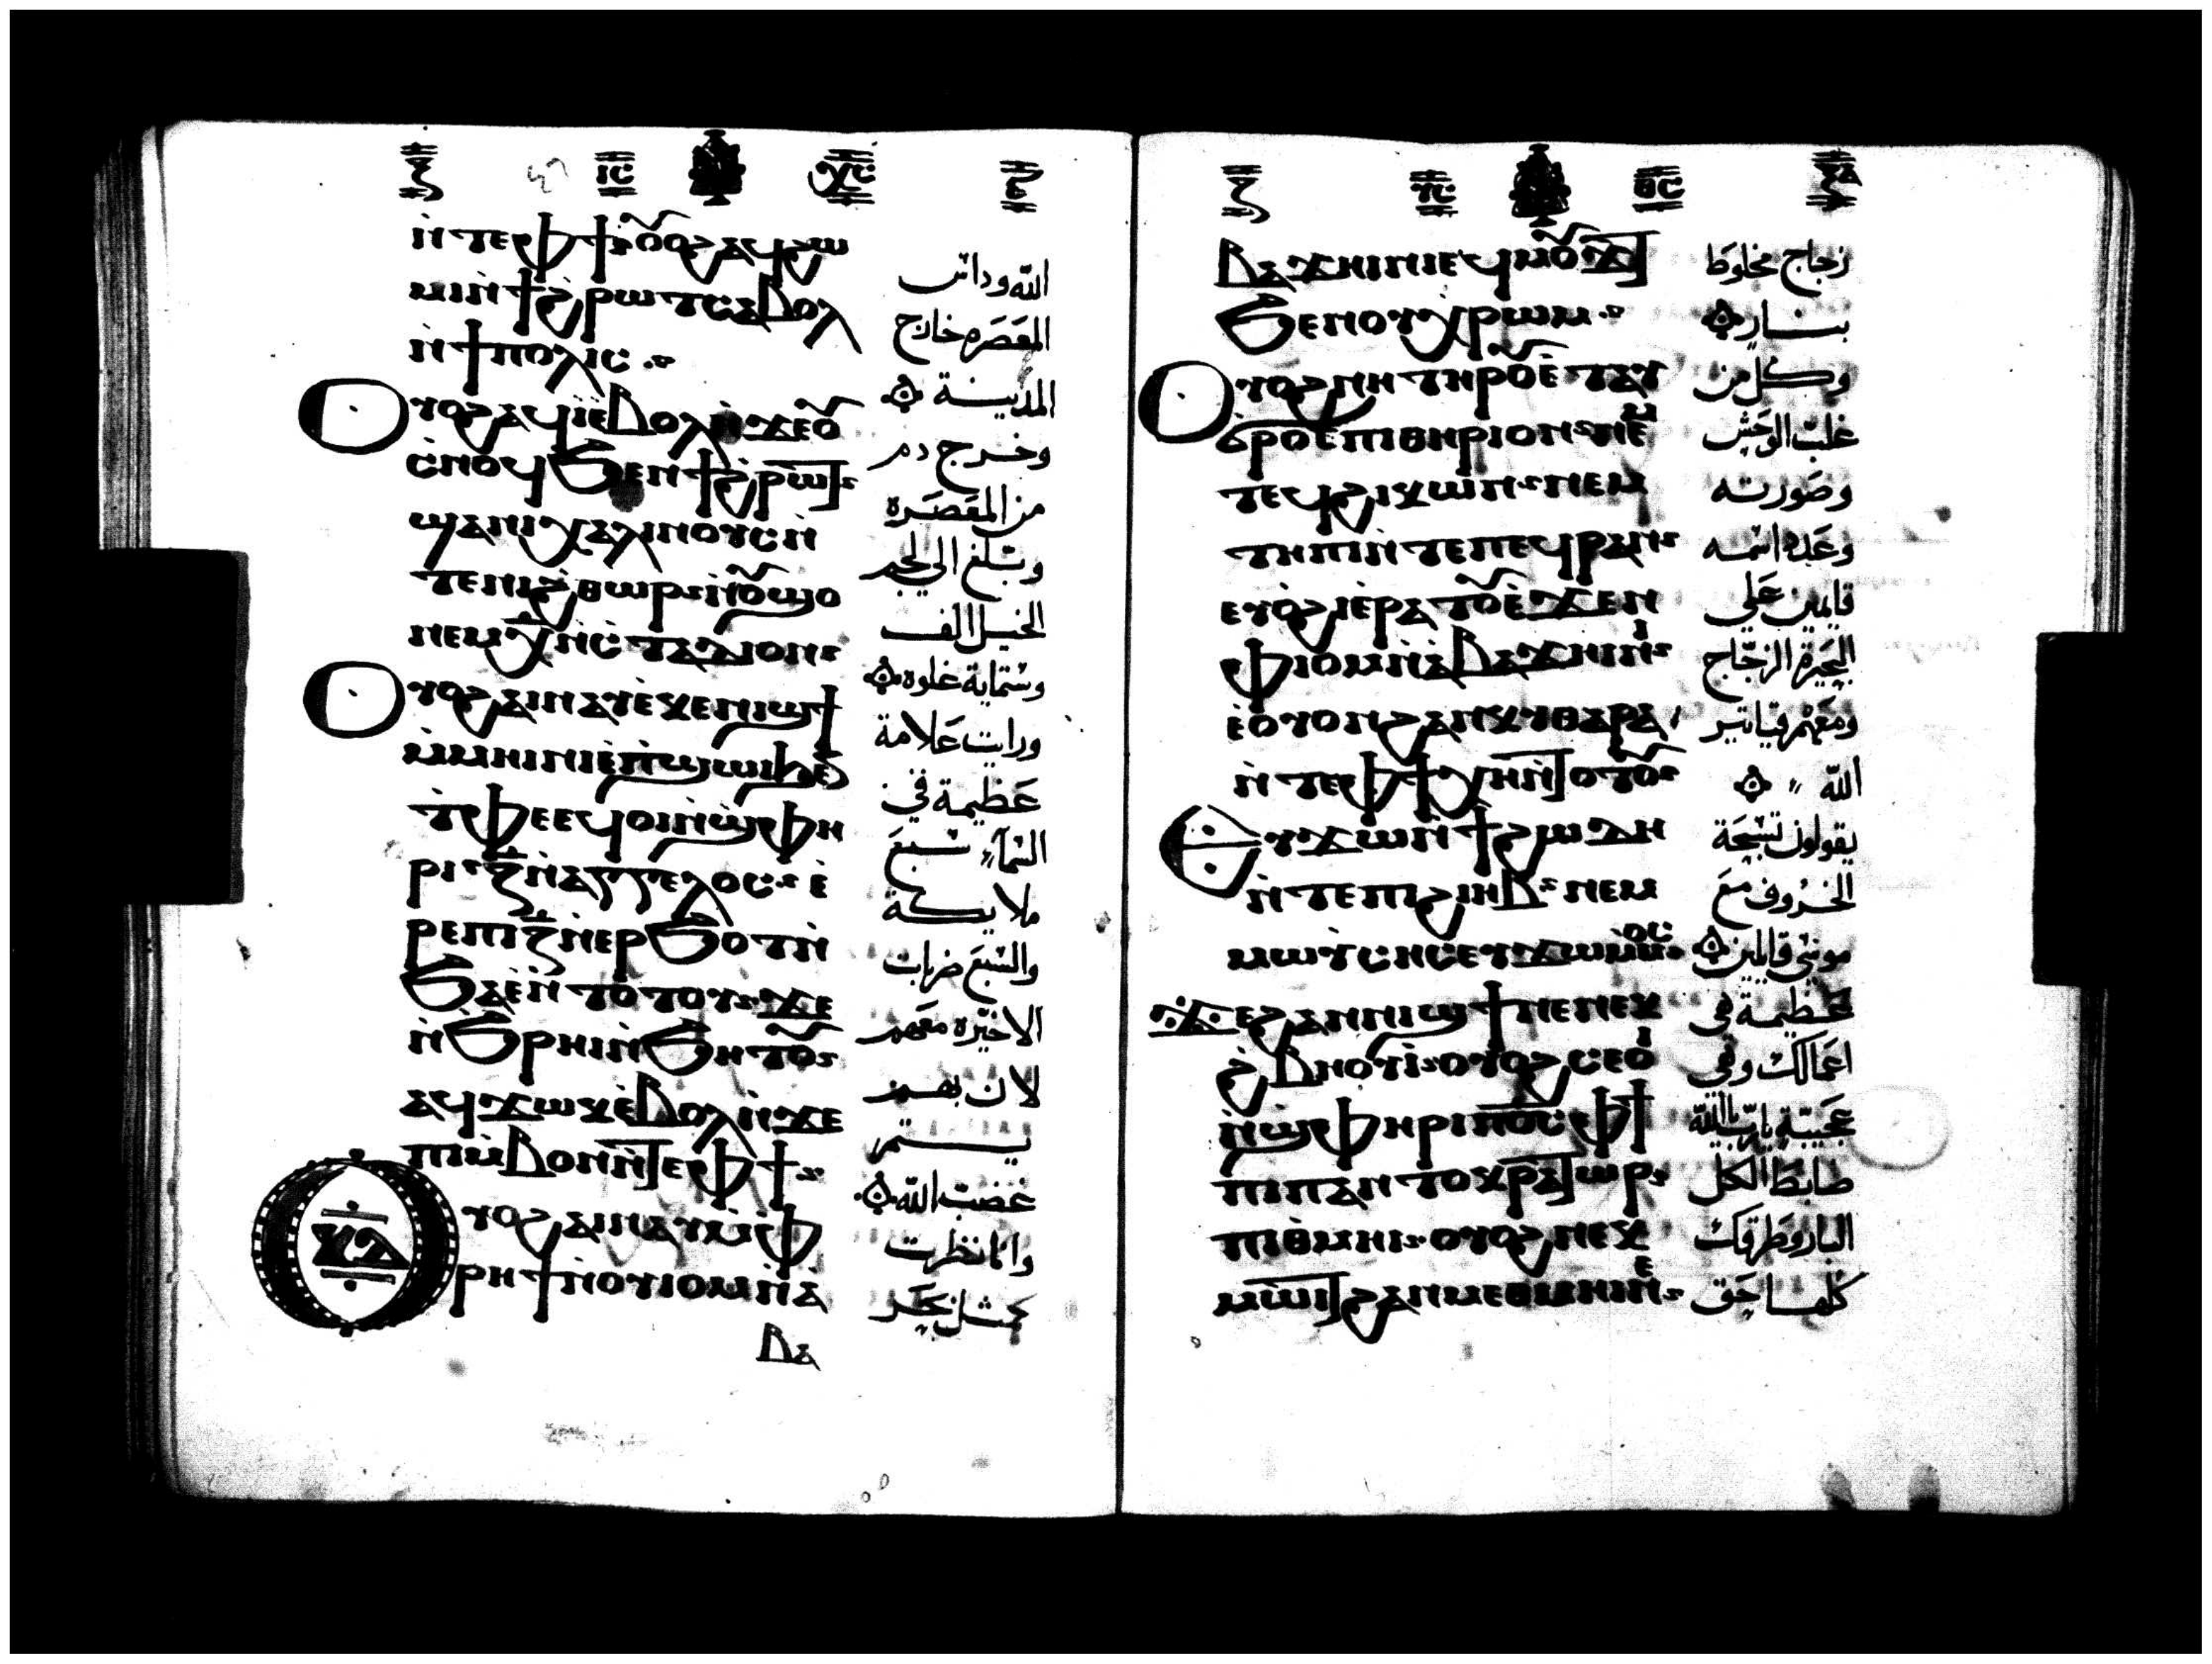 ⲓⲥ ⲭⲥ
ⲛ̀ⲧⲉⲫϯ ⲟⲩⲟϩ ⲁϥϩⲱ
ⲙⲓ ⲛ̀ϯϩ̀ⲣⲱⲧ ⲥⲁⲃⲟⲗ
ⲛ̀ϯⲡⲟⲗⲓⲥ
ⲟⲩⲟϩ ⲁϥⲓ̀ ⲉ̀ⲃⲟⲗ ⲛ̀ϫⲉⲟⲩ
ⲥ̀ⲛⲟϥ ϧⲉⲛ ϯϩ̀ⲣⲱⲧ
ϣⲁ ⲛⲓⲭⲁⲗⲓⲛⲟⲩⲥ ⲛ̀
ⲧⲉ ⲛⲓϩ̀ⲑⲱⲣ ⲛ̀ⲟⲩϣⲟ
ⲛⲉⲙ ⲭ̅ ⲛ̀ⲥ̀ⲧⲁⲇⲓⲟⲛ
ⲟⲩⲟϩ ⲁⲓⲛⲁⲩ ⲉ̀ⲕⲉⲛⲓϣϯ
ⲙ̀ⲙⲏⲓⲛⲓ ⲉ̀ⲛ̀ϣⲱⲓ ϧⲉⲛ
ⲧ̀ⲫⲉ ⲉϥⲟⲓ ⲛ̀ϣⲫⲏ
ⲣⲓ ⲍ̅ ⲛ̀ⲁⲅⲅⲉⲗⲟⲥ ⲉ̀
ⲣⲉ ⲡⲓⲍ̅ ⲛ̀ⲉⲣϧⲟⲧ ⲛ̀
ϧⲁⲉ̀ ⲛ̀ⲧⲟⲧⲟⲩ ϫⲉ
ⲛ̀ϧⲣⲏⲓ ⲛ̀ϧⲏⲧⲟⲩ
ⲁϥϫⲱⲕ ⲉ̀ⲃⲟⲗ ⲛ̀ϫⲉ
ⲡⲓⲙ̀ⲃⲟⲛ ⲛ̀ⲧⲉ ⲫϯ
ⲟⲩⲟϩ ⲁⲓⲛⲁⲩ ⲙ̀ⲫ
ⲣⲏϯ ⲛ̀ⲟⲩⲓⲟⲙ ⲛ̀ⲁ̀
ⲃⲁ
الله وداس
المعصره خارج
المدينة
وخرج دم
من المعصره
وبلغ الى لجم
الخيل الف
وستماية غلوه
ورايت علامة
عظيمة في
السماء سبع
ملايكة
والسبع ضربات
الاخيره معهم
لان بهم
يتم
غضب الله
وانا نظرت
كمثل بحر
ⲩⲥ ⲑⲥ ⲝⲁ
ⲃⲁϫⲏⲓⲛⲓ ⲉϥⲙⲟⲩϫⲧ
ϧⲉⲛ ⲟⲩⲭ̀ⲣⲱⲙ
ⲟⲩⲟϩ ⲛⲏ ⲧⲏⲣⲟⲩ ⲉ̀ⲧⲁⲩ
ϭⲣⲟ ⲉ̀ⲡⲓⲑⲏⲣⲓⲟⲛ ⲛⲉⲙ
ⲧⲉϥϩⲓⲕⲱⲛ ⲛⲉⲙ
ⲧⲏⲡⲓ ⲛ̀ⲧⲉ ⲡⲉϥⲣⲁⲛ
ⲉⲩⲟ̀ϩⲓ ⲉ̀ⲣⲁⲧⲟⲩ ⲉ̀ϫⲉⲛ
ⲫⲓⲟⲙ ⲛ̀ⲁ̀ⲃⲁϫⲏⲓⲛⲓ
ⲉ̀ⲟⲩⲟⲛ ϩⲁⲛⲕⲩⲑⲁⲣⲁ
ⲛ̀ⲧⲉ ⲫϯ ⲭⲏ ⲛ̀ⲧⲟⲧⲟⲩ
ⲉⲩϫⲱ ⲛ̀ϯϩⲱⲇⲏ
ⲛ̀ⲧⲉ ⲡⲓϩⲓⲏⲃ ⲛⲉⲙ
ⲙⲱⲩ̀ⲥⲏⲥ ⲉⲩϫⲱ ⲙ̀ⲙⲟⲥ
ϫⲉ ϩⲁⲛⲛⲓϣϯ ⲛⲉ ⲛⲉⲕ
ϩ̀ⲃⲏⲟⲩⲓ̀ ⲟⲩⲟϩ ⲥⲉⲟⲓ
ⲛ̀ϣⲫⲏⲣⲓ ⲡⲟⲥ ⲫϯ
ⲡⲓⲡⲁⲛⲧⲟⲕⲣⲁⲧⲱⲣ
ⲡⲓⲑ̀ⲙⲏⲓ ⲟⲩⲟϩ ⲛⲉⲕ
ⲙⲱⲓⲧ ϩⲁⲛⲙⲉⲑⲙⲏⲓ ⲛⲉ
زجاج مخلوط
بنار
وكل من
غلب الوحش
وصورته
وعدد اسمه
قايمين على
البحيرة الزجاج
ومعهم قياتير
الله
يقولون تسبحة
الخروف مع
موسى قايلين
عظيمة هي
اعمالك وهي
عجيبة يارب الله
ضابط الكل
البار وطرقك
كلها حق